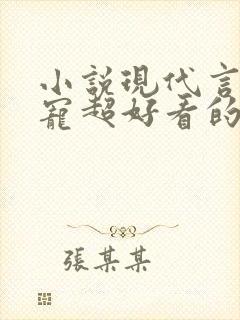 小說現代言
寵超好看的
張某某